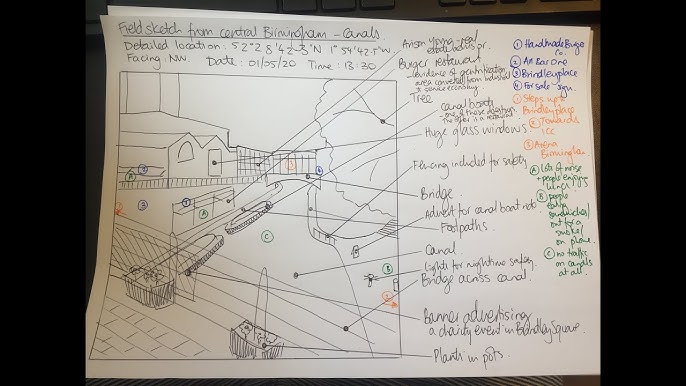 Field sketch from central Birmingham - Canals.
Detailed location: 52°28'42.3"N 1°54'42.5"W.
Facing: NW. Date: 01/05/20 Time: 13:30
Burger restaurant
evidence of gentrification
area converted from industrial
to service economy.
Tree
Canal boats
one of these advertising
the other is a restaurant
Huge glass windows
Fencing included for safety
Bridge
advert for canal boat ride
Footpaths
Canal
Lights for nightime safety.
Bridge across canal.
Banner advertising
a charity event in Brindley Square.
Plants in pots.
① Handmade Burger
Co.
② All Bar One
③ Brindleyplace
④ For sale sign.
① Steps up to
Brindleyplace
② Towards
ICC
③ Arena
Birmingham
Ⓐ lots of noise
+ people enjoying
Ⓑ people
eating
sandwiches/
out for a
smoke/
on phone.
Ⓒ no traffic
on canals
at all.